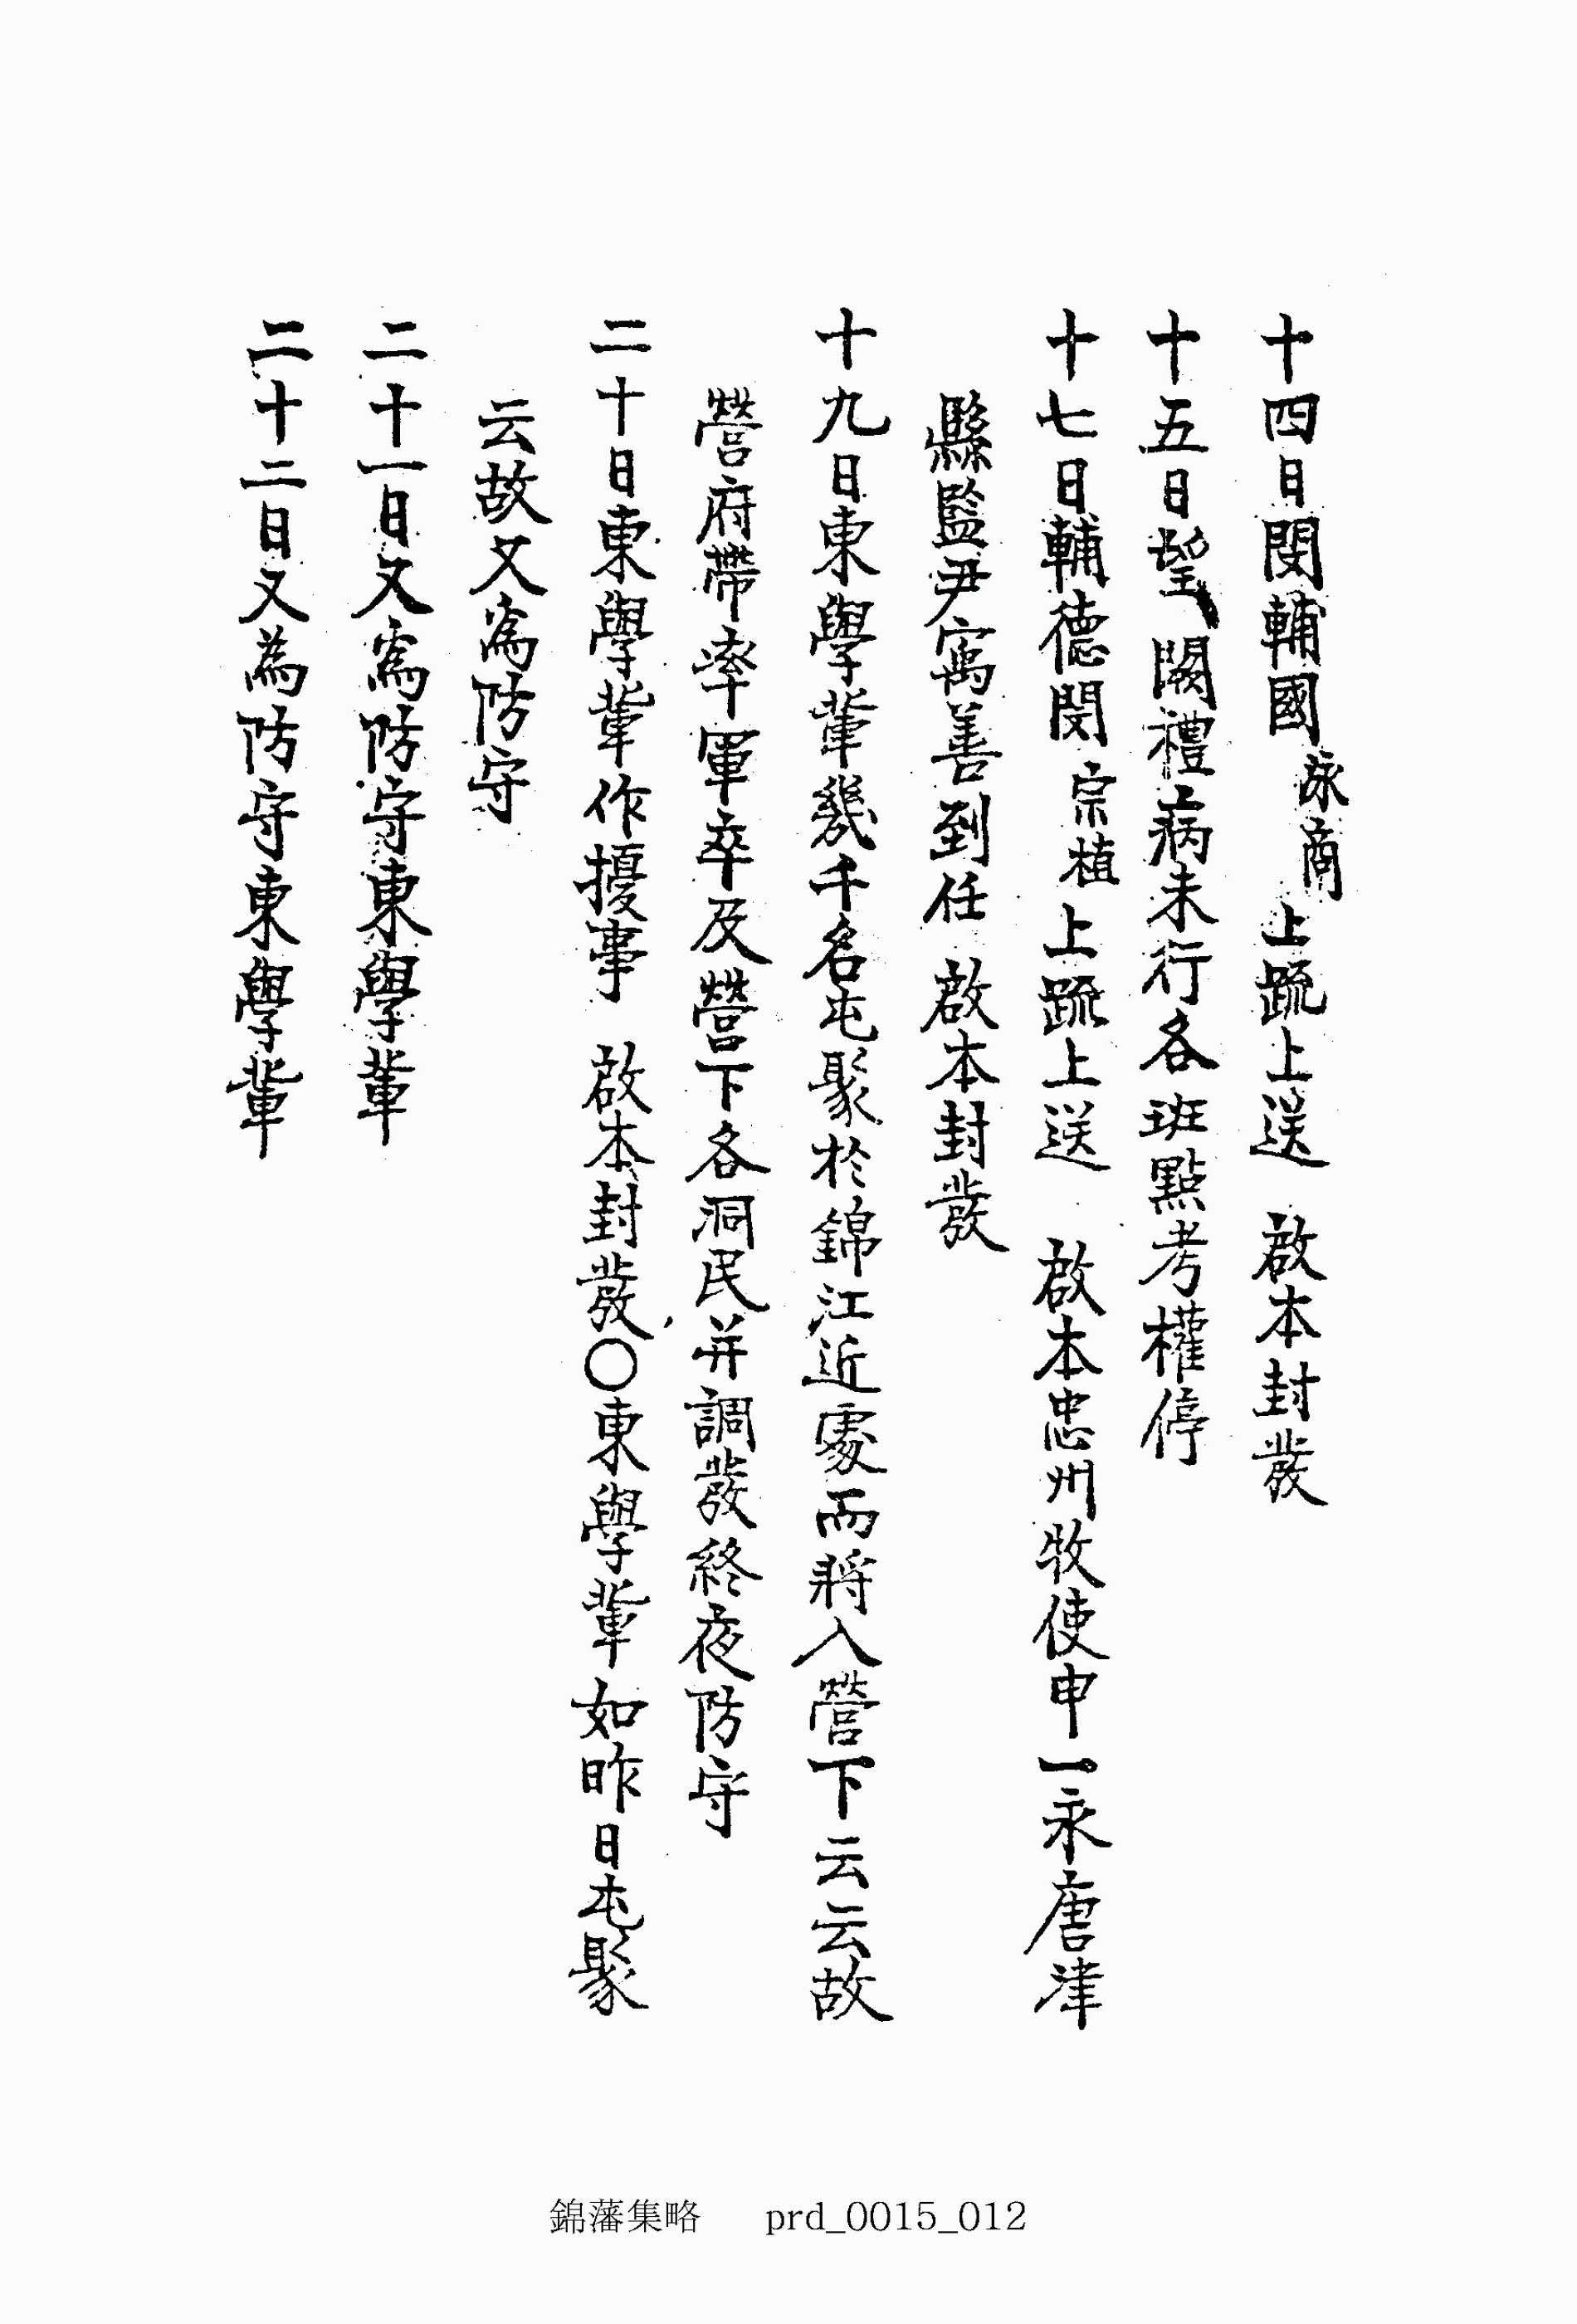 十四日閔輔國泳商上疏上送 啟本封發
十五日望 闕禮病未行各班點考權停
十七日輔德閔宗植上疏上送 啟本忠州牧使申一永唐津
縣監尹寓善到任 啟本封發
十九日東學輩幾千名屯聚於錦江近處而將入營下云云故
營府帶率軍卒及營下各洞民并調發終夜防守
二十日東學輩作擾事 啟本封發○東學輩如昨日屯聚
云故又爲防守
二十一日又爲防守東學輩
二十二日又為防守東學輩
錦藩集略 prd_0015_012